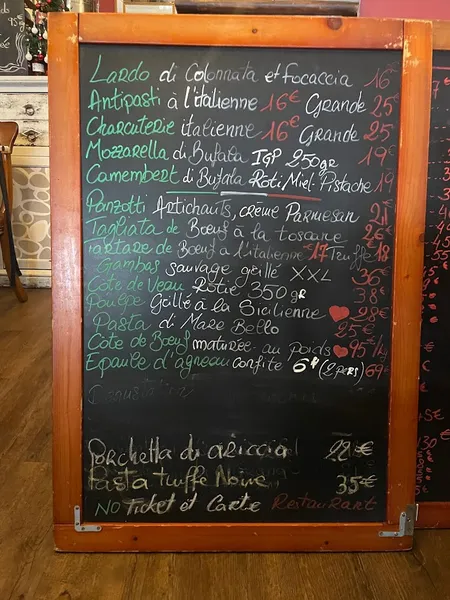 Lardo di Colonnata et focaccia 16€
Antipasti à l'italienne 16€ Grande 25€
Charcuterie italienne 16€ Grande 25
Mozzarella di Bufala IGP 250gr 19€
Camembert di Bufala Roti, Miel. Pistache 19
Panzotti Artichauts, crème Parmesan 21€
Tagliata de Bœuf à la toscane 26€
Tartare de Bœuf à l'italienne 17 Truffe 18
Gambas sauvage grillé XXL 36€
Côte de Veau Rôtie 350gr 38€
Poulpe Grillé à la Sicilienne 28€
Pasta di Mare Bello 25€
Côte de Bœuf maturée au poids 95€/kg
Epaule d'agneau confite (2 pers) 69€
Porchetta di ariccia 28€
Pasta truffe Noire 35€
NO Ticket et Carte Restaurant